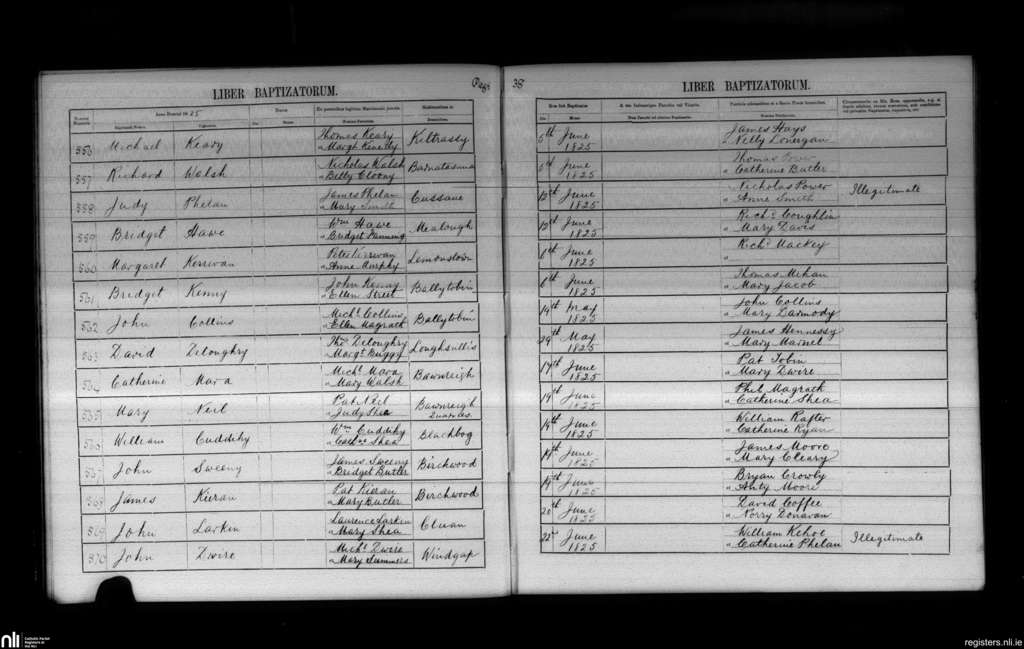 LIBER BAPTIZATORUM.
Page
Anno Domini 1825
Ex parentibus legitimo Matrimonio junctis
556 Michael Keary Thomas Keary Kiltrassy
" Margt Kinealy
557 Richard Walsh Nicholas Walsh Barnatasma
" Betty Cloony
558 Judy Phelan James Phelan Cussane
" Mary Smith
559 Bridget Hawe Wm Hawe Mealough
" Bridget Manning
560 Margaret Kerrivan Peter Kirrwan Lemonstown
" Anne Murphy
561 Bridget Kenny John Kenny Ballytobin
" Ellen Street
562 John Collins Michl Collins Ballytobin
" Ellen Magrath
563 David Deloughry Thos Deloughry Loughsullis
" Margt Buggy
564 Catherine Mara Michl Mara Bawnreigh
" Mary Walsh
565 Mary Neil Pat Neil Bawnreigh
" Judy Shea
566 William Cuddihy Wm Cuddihy Blackbog
" Cathne Shea
567 John Sweeny James Sweeny Birchwood
" Bridget Butler
568 James Kieran Pat Kieran Birchwood
" Mary Butler
569 John Larkin Laurence Larkin Cluan
" Mary Shea
570 John Dwire Michl Dwire Windgap
" Mary Summers
38
LIBER BAPTIZATORUM.
5th June James Hays
1825 " Nelly Lonergan
5th June Thomas Power
1825 " Catherine Butler
12th June Nicholas Power Illegitimate
1825 " Anne Smith
12th June Richd Coughlin
1825 " Mary Davis
6th June Richd Mackey
1825 "
6th June Thomas Mehan
1825 " Mary Jacob
19th May John Collins
1825 " Mary Darmody
29th May James Hennessy
1825 " Mary Marnel
14th June Pat Tobin
1825 " Mary Dwire
19th June Phil Magrath
1825 " Catherine Shea
19th June William Rafter
1825 " Catherine Ryan
19th June James Moore
1825 " Mary Cleary
19th June Bryan Crowby
1825 " Anty Moore
20th June David Coffee
1825 " Norry Donavan
22d June William Kehoe Illegitimate
1825 " Catherine Phelan
nli Catholic Parish
Registers at
the NLI
registers.nli.ie